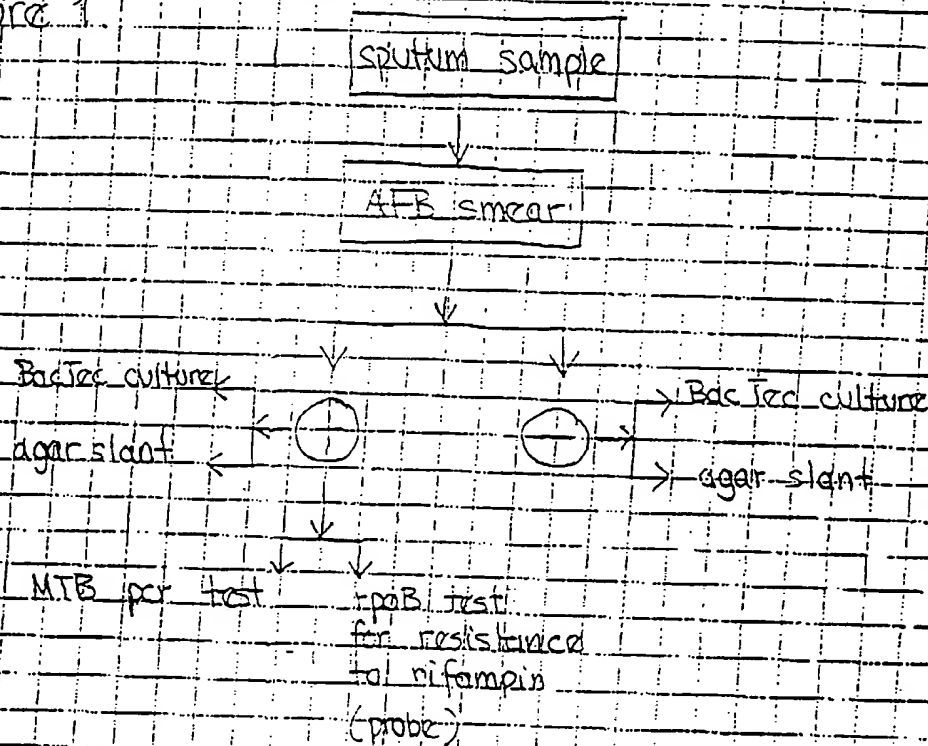 ure 1.
sputum sample
AFB smear
BacTec culture
agar slant
+
−
BacTec culture
agar slant
MTB pcr test
rpoB test
for resistance
to rifampin
(probe)